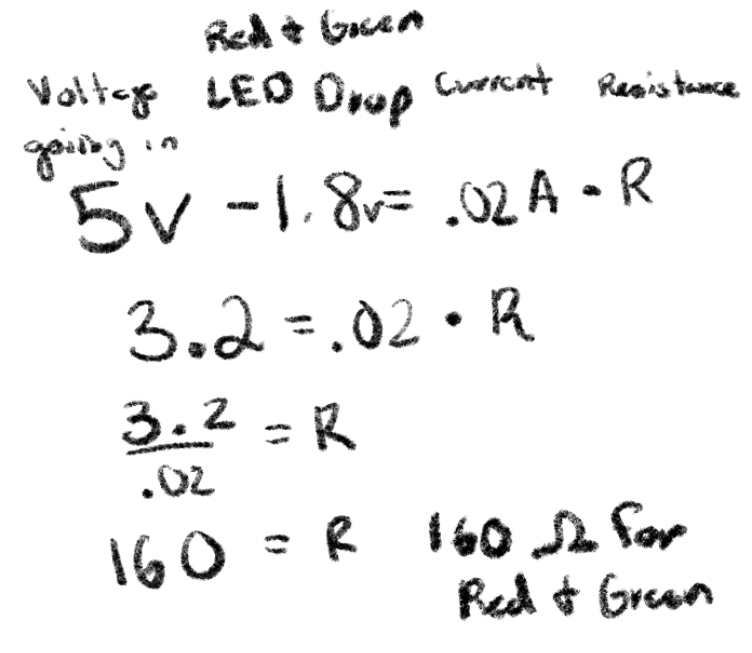 Red & Green
Voltage LED Drop Current Resistance
going in
5v - 1.8v = .02A • R
3.2 = .02 • R
3.2
.02
= R
160 = R 160 Ω For
Red & Green